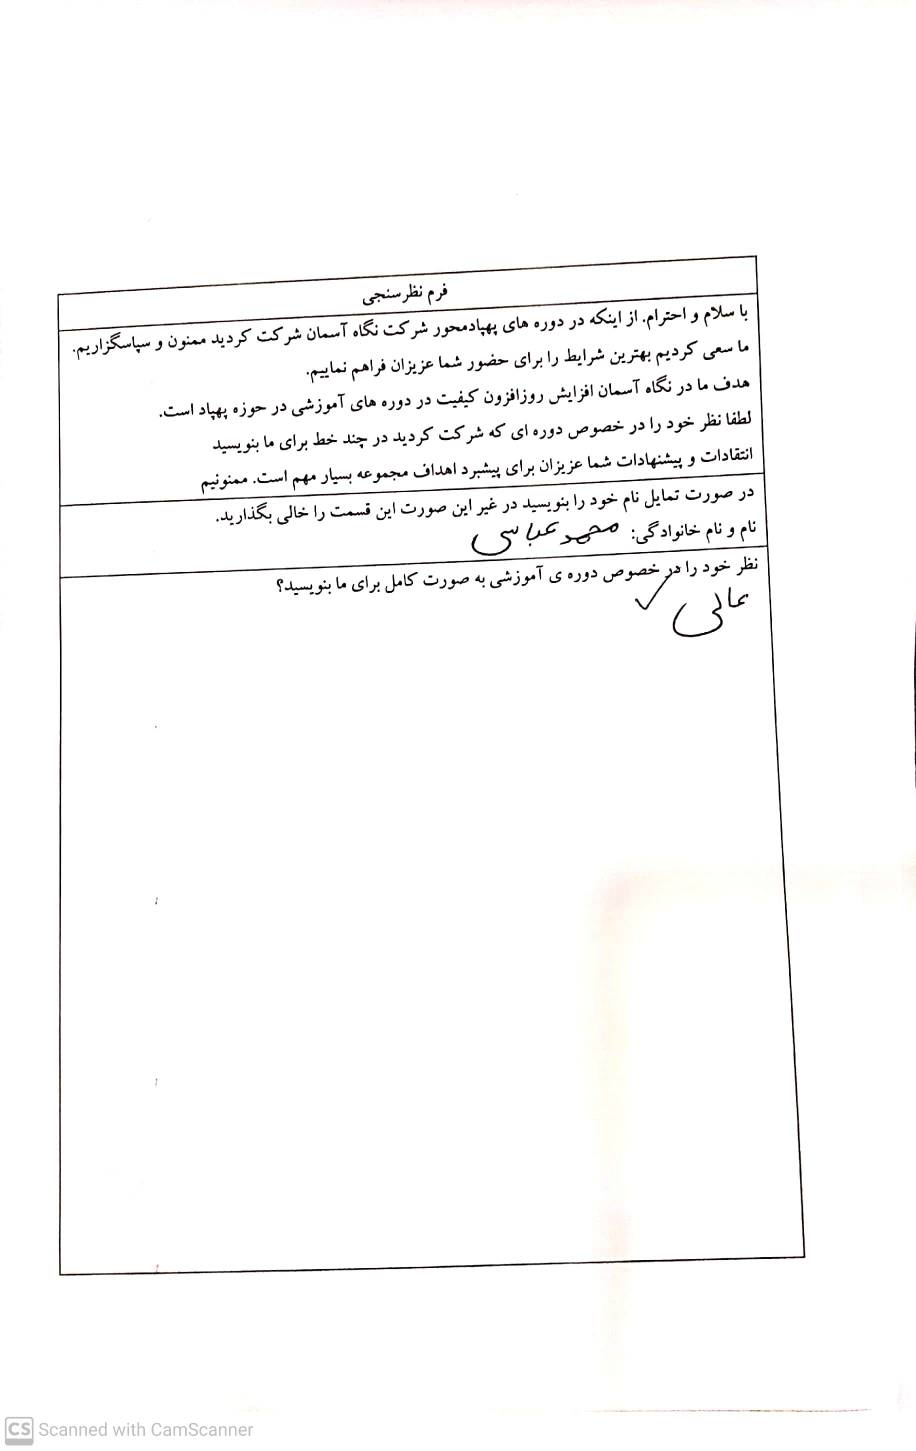 فرم نظرسنجی
با سلام و احترام. از اینکه در دوره های پهپادمحور شرکت نگاه آسمان شرکت کردید ممنون و سپاسگزاریم.
ما سعی کردیم بهترین شرایط را برای حضور شما عزیزان فراهم نماییم.
هدف ما در نگاه آسمان افزایش روزافزون کیفیت در دوره های آموزشی در حوزه پهپاد است.
لطفا نظر خود را در خصوص دوره ای که شرکت کردید در چند خط برای ما بنویسید
انتقادات و پیشنهادات شما عزیزان برای پیشبرد اهداف مجموعه بسیار مهم است. ممنونیم
در صورت تمایل نام خود را بنویسید در غیر این صورت این قسمت را خالی بگذارید.
نام و نام خانوادگی: محمد عباسی
نظر خود را در خصوص دوره ی آموزشی به صورت کامل برای ما بنویسید؟
عالی ✓
CS Scanned with CamScanner